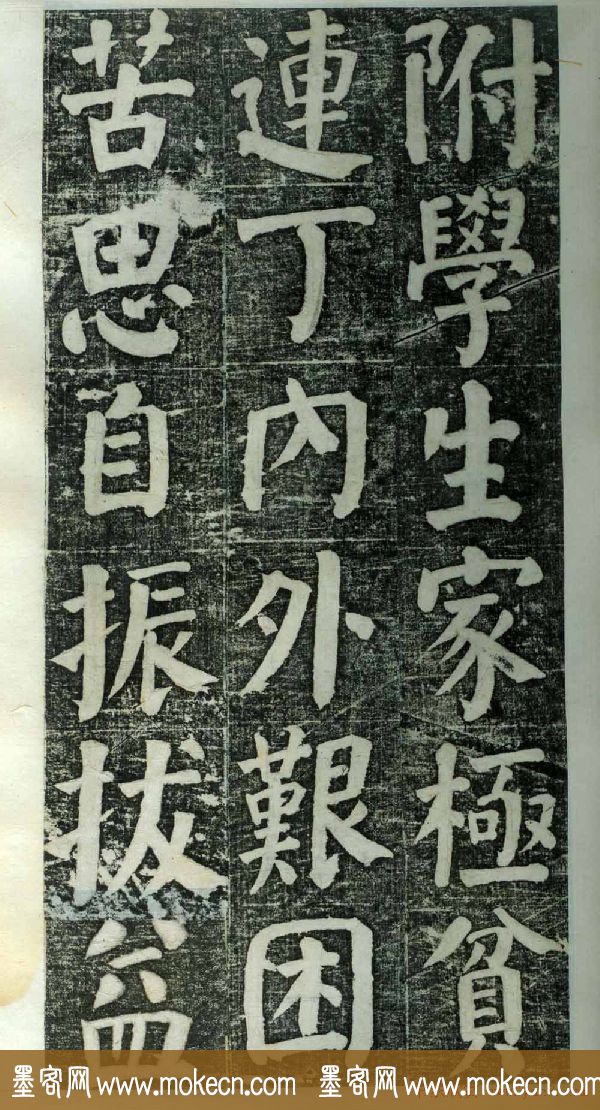 附學生家極貧
連丁內外艱困
苦思自振拔益
墨客网 www.mokecn.com 墨客网 www.mokecn.com